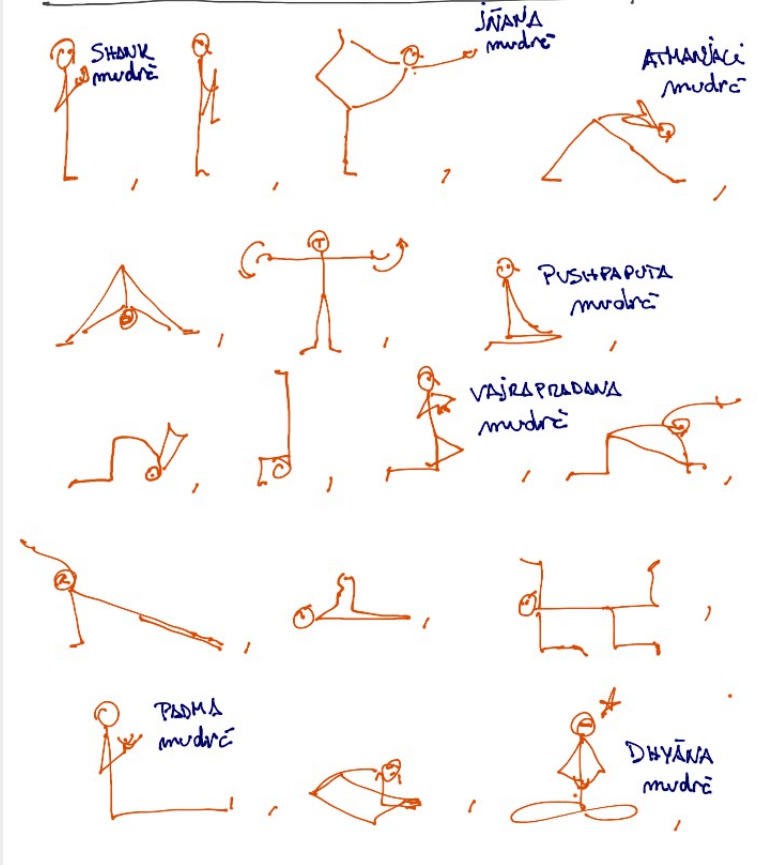 SHANK
mudrā
JÑANA
mudrā
ATMANJALI
mudrā
PUSHPAPUTA
mudrā
VAJRAPRADANA
mudrā
PADMA
mudrā
DHYĀNA
mudrā